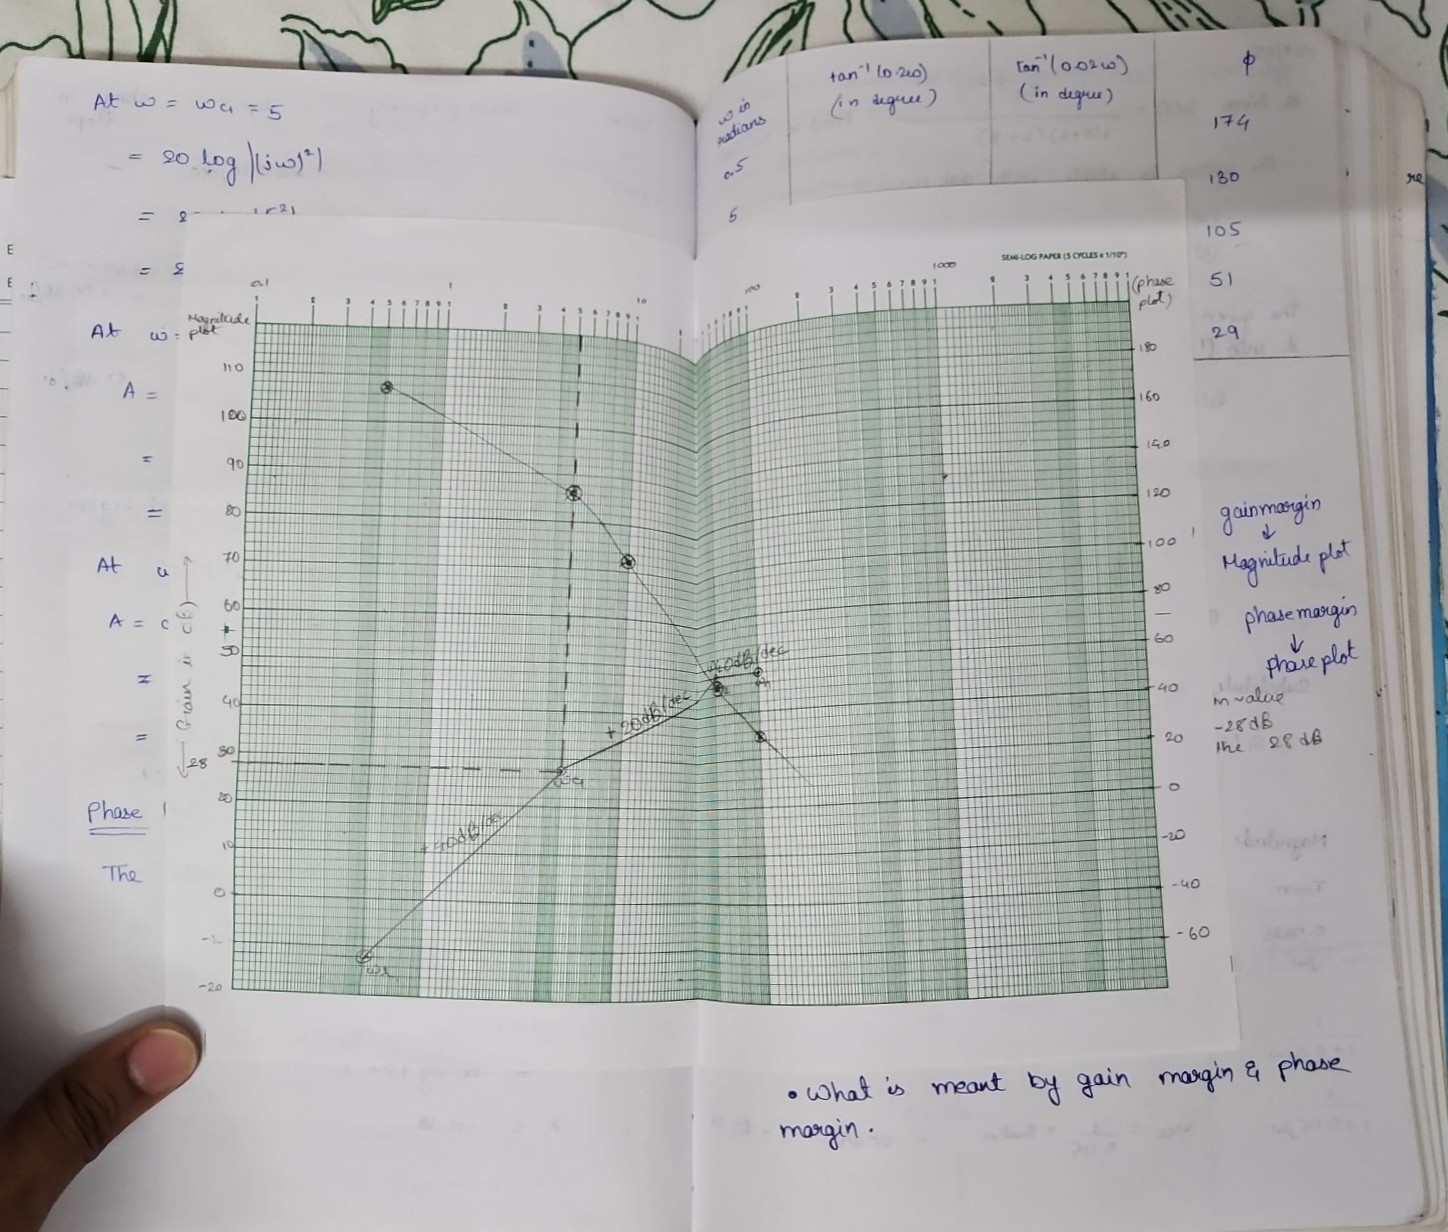 At ω = ωc1 = 5
= 20 log |(jω)²|
=
=
At ω =
A =
=
=
At
A =
=
=
Phase
The
ω in
radians
tan⁻¹ (0.2ω)
(in degree)
tan⁻¹ (0.02ω)
(in degree)
ϕ
0.5
174
5
130
105
51
29
re
SEMI-LOG PAPER (5 CYCLES x 1/10")
0.1
1
10
100
1000
1 2 3 4 5 6 7 8 9 1 2 3 4 5 6 7 8 9 1
2 3 4 5 6 7 8 9 1 2 3 4 5 6 7 8 9 1
Magnitude
plot
(phase
plot)
110
100
90
80
70
60
50
40
30
28
20
10
0
-20
Gain in
180
160
140
120
100
80
60
40
20
0
-20
-40
-60
+40dB/dec
+20dB/dec
dB/dec
gain margin
↓
Magnitude plot
phase margin
↓
phase plot
value
-28 dB
the 28 dB
• What is meant by gain margin & phase
margin.